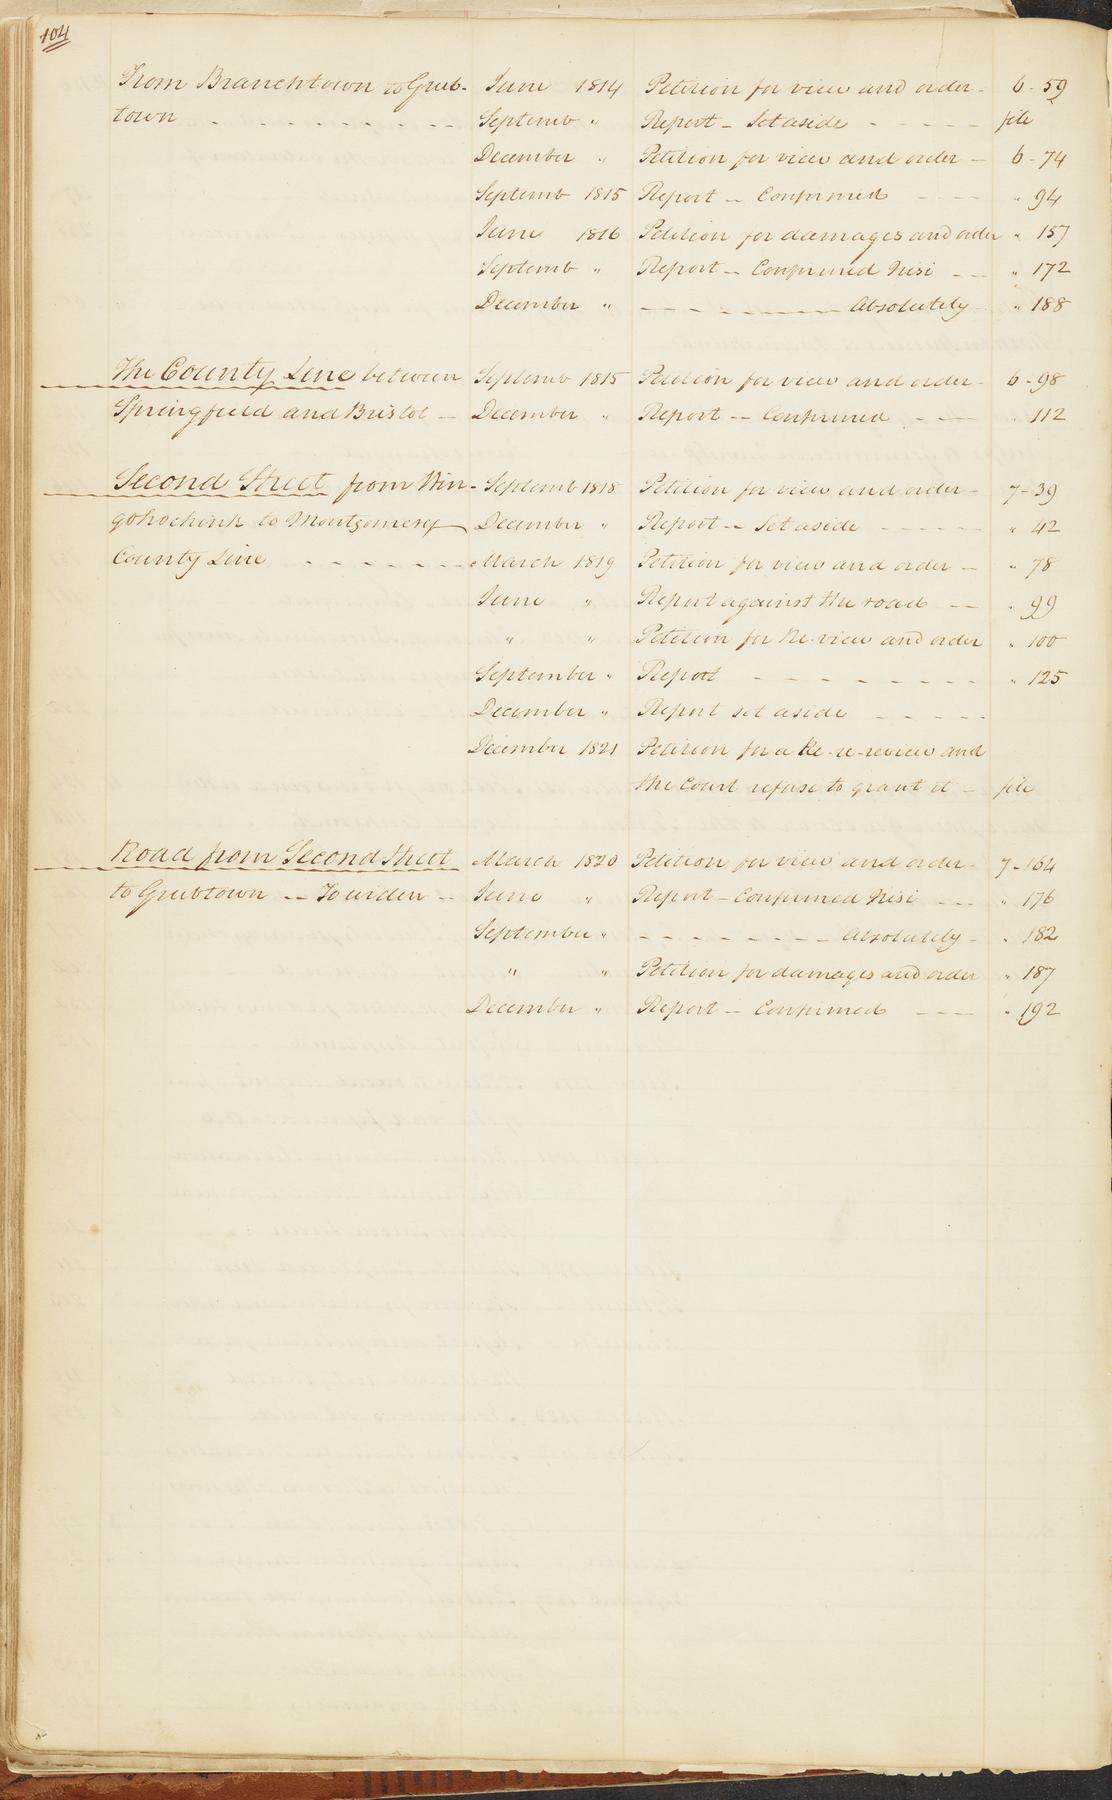 104
From Branchtown to Grub- June 1814 Petition for view and order - 6 - 59
town - - - - - - - - - Septemb " Report - Set aside - - - - - file
December " Petition for view and order - 6 - 74
Septemb 1815 Report -- Confirmed - - - - " 94
June 1816 Petition for damages and order " 157
Septemb " Report -- Confirmed Nisi - - - " 172
December " - - - - - - - - Absolutely - " 188
The County Line between Septemb 1815 Petition for view and order - 6 - 98
Springfield and Bristol -- December " Report -- Confirmed - - - " 112
Second Street from Win- Septemb 1818 Petition for view and order - 7 - 39
gohochink to Montgomery December " Report -- Set aside - - - - - - " 42
County Line - - - - - - - March 1819 Petition for view and order -- " 78
June " Report against the road -- " 99
" " Petition for Re-view and order " 100
September " Report - - - - - - - - - " 125
December " Report set aside - - - - -
December 1821 Petition for a Re-re-review and
the Court refuse to grant it - file
Road from Second Street March 1820 Petition for view and order - 7 - 164
to Grubtown -- To widen -- June " Report - Confirmed Nisi - - - " 176
September " - - - - - - - - - Absolutely - " 182
" " Petition for damages and order " 187
December " Report -- Confirmed - - - " 192